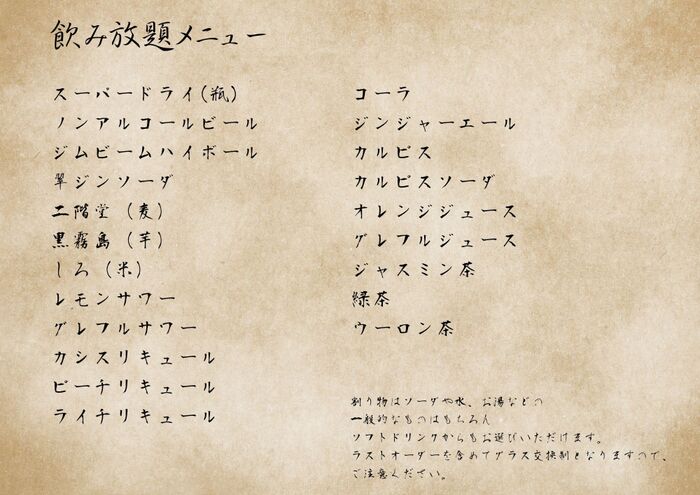 飲み放題メニュー
スーパードライ(瓶)
ノンアルコールビール
ジムビームハイボール
翠ジンソーダ
二階堂（麦）
黒霧島（芋）
しろ（米）
レモンサワー
グレフルサワー
カシスリキュール
ピーチリキュール
ライチリキュール
コーラ
ジンジャーエール
カルピス
カルピスソーダ
オレンジジュース
グレフルジュース
ジャスミン茶
緑茶
ウーロン茶
割り物はソーダや水、お湯などの
一般的なものはもちろん
ソフトドリンクからもお選びいただけます。
ラストオーダーを含めてグラス交換制となりますので、
ご注意ください。